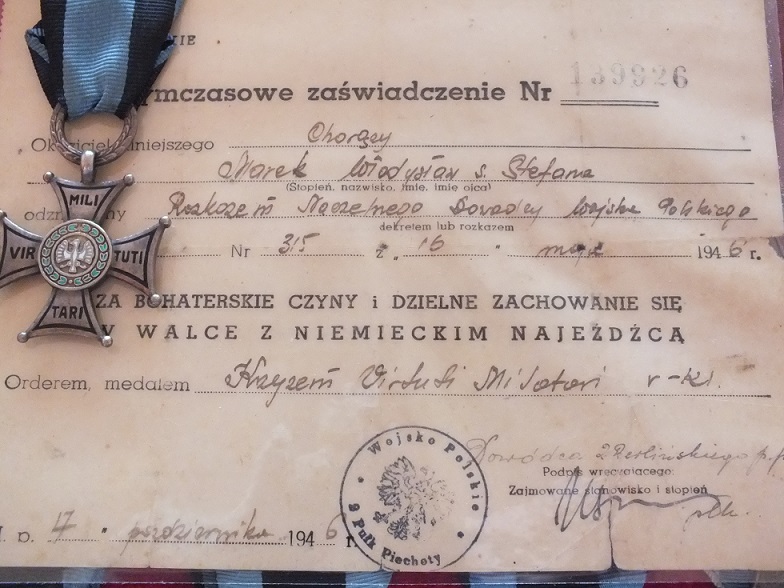 NIE
ymczasowe zaświadczenie Nr 139926
Okaziciel niniejszego Chorąży
Marek Władysław s. Stefana
(Stopień, nazwisko, imię, imię ojca)
odzn ny Rozkazem Naczelnego Dowódcy Wojska Polskiego
dekretem lub rozkazem
Nr 315 z „ 16 " maja 1946 r.
ZA BOHATERSKIE CZYNY i DZIELNE ZACHOWANIE SIĘ
W WALCE Z NIEMIECKIM NAJEŹDŹCĄ
Orderem, medalem Krzyżem Virtuti Militari V-kl.
MILI
VIR TUTI
TARI
Wojsko Polskie
2 Pułk Piechoty
Dowódca 2 Berlińskiego p.p.
Podpis wręczającego:
Zajmowane stanowisko i stopień
płk.
M. p. 17 " października 1946 r.